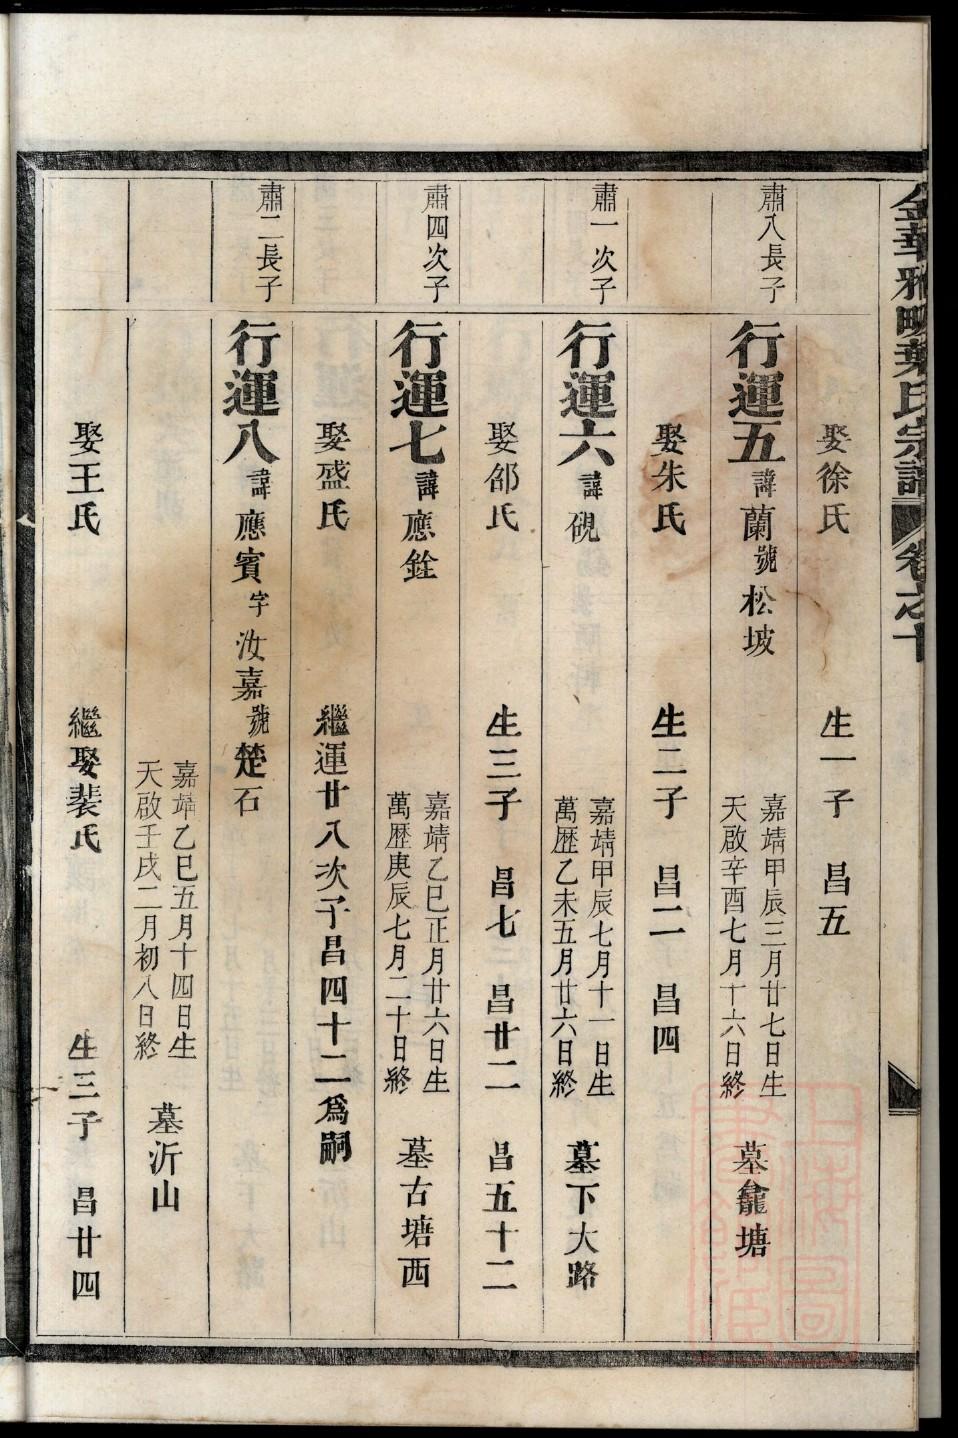 金華雅畈葉氏宗譜 卷之十
娶徐氏 生一子 昌五
肅八長子
行運五 諱蘭號松坡 嘉靖甲辰三月廿七日生
天啟辛酉七月十六日終 墓龕塘
娶朱氏 生二子 昌二 昌四
肅一次子
行運六 諱硯 嘉靖甲辰七月十一日生
萬歷乙未五月廿六日終 墓下大路
娶邵氏 生三子 昌七 昌廿二 昌五十二
肅四次子
行運七 諱應銓 嘉靖乙巳正月廿六日生
萬歷庚辰七月二十日終 墓古塘西
娶盛氏 繼運廿八次子昌四十二爲嗣
肅二長子
行運八 諱應賓字汝嘉號楚石
嘉靖乙巳五月十四日生
天啟壬戌二月初八日終 墓沂山
娶王氏 繼娶裴氏 生三子 昌廿四